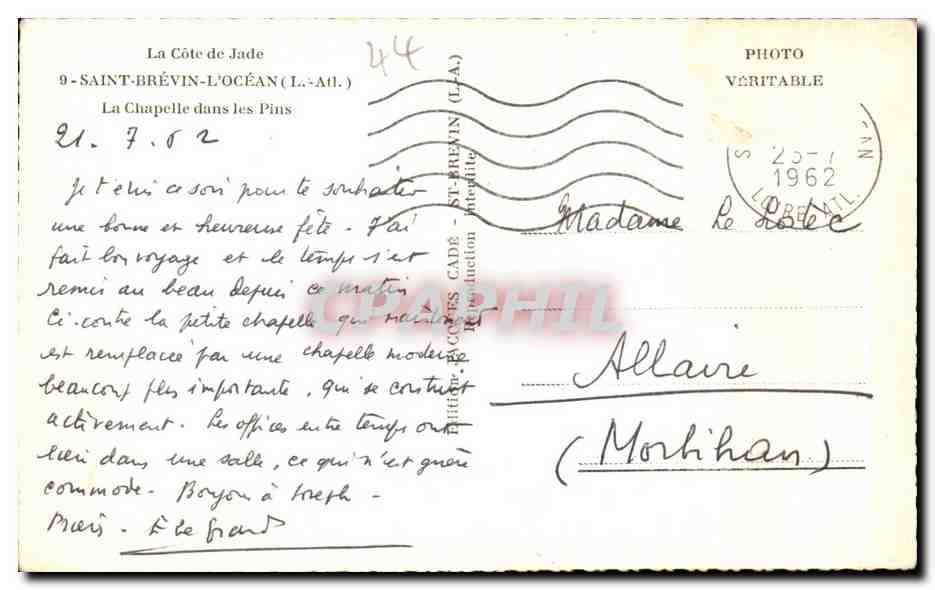 La Côte de Jade
9 - SAINT-BRÉVIN-L'OCÉAN (L.-Atl.)
La Chapelle dans les Pins
44
21. 7. 62
Je t'écris ce soir pour te souhaiter
une bonne et heureuse fête. J'ai
fait bon voyage et le temps s'est
remis au beau depuis ce matin
Ci-contre la petite chapelle qui maintenant
est remplacée par une chapelle moderne
beaucoup plus importante, qui se construit
activement. Les offices entre temps ont
lieu dans une salle, ce qui n'est guère
commode. Bonjour à Joseph -
E Le Grand
Editions JACQUES CADÉ - ST-BREVIN (L.-A.)
Reproduction interdite
PHOTO
VÉRITABLE
1962
LOIRE-ATL.
Madame Le
Allaire
(Morbihan)
CPAPHIL